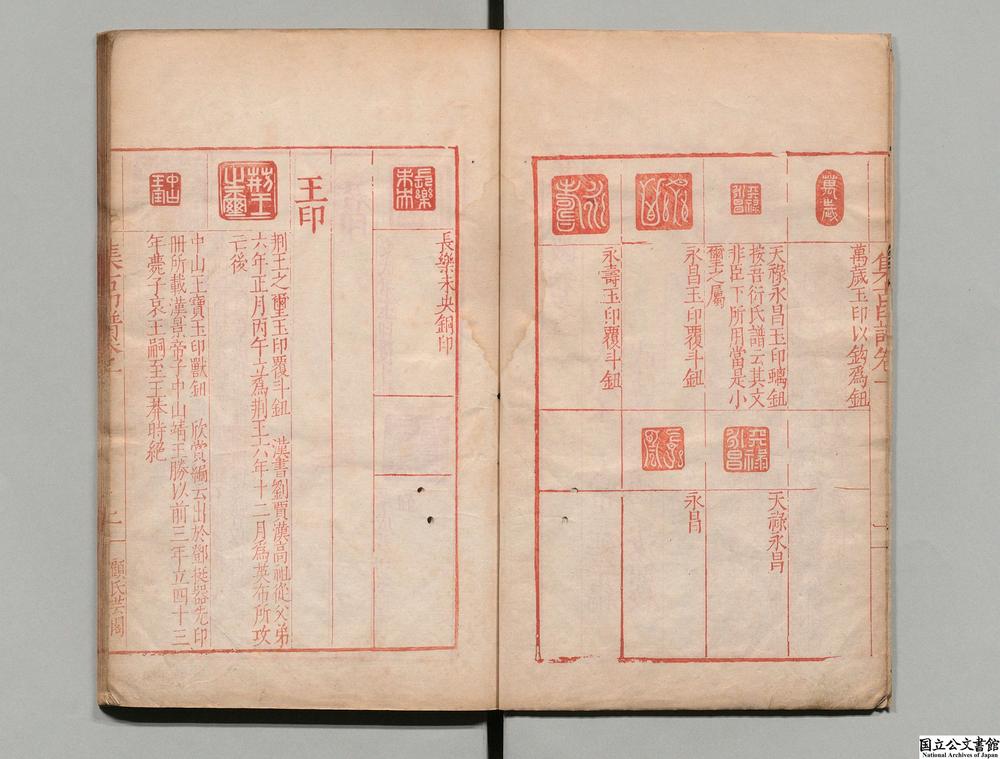 集古印譜卷一
萬歲
萬歲玉印以鈎爲鈕
天祿永昌
天祿永昌玉印螭鈕
按吾衍氏譜云其文
非臣下所用當是小
璽之屬
天祿永昌
天祿永昌
永昌
永昌玉印覆斗鈕
永昌
永壽
永壽玉印覆斗鈕
長樂未央
長樂未央銅印
王印
荊王之璽
荊王之璽玉印覆斗鈕 漢書劉賈漢高祖從父弟
六年正月丙午立爲荊王六年十二月爲英布所攻
亡後
中山王寶
中山王寶玉印獸鈕 欣賞編云出於鄧梃器先印
冊所載漢景帝子中山靖王勝以前三年立四十三
年薨子哀王嗣至王莽時絕
集古印譜卷一
顧氏芸閣
国立公文書館
National Archives of Japan